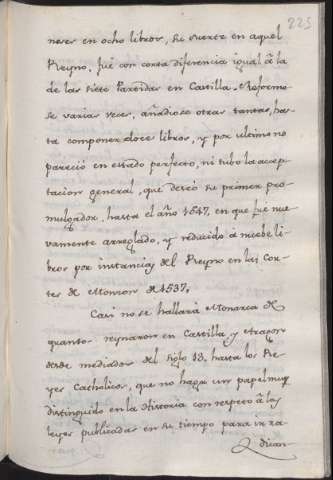 223
neros en ocho libros, su suerte en aquel
Reyno, fué con corta diferencia igual â la
de las siete Partidas en Castilla. Reformo
se varias veces, añadiose otras tantas, has
ta componer doce libros, y por ultimo no
pareció en estado perfecto, ni tubo la acep
tacion general, que deseó su primer pro
mulgador, hasta el año 1547, en que fué nue
vamente arreglado, y reducido á nuebe li
bros por instancias del Reyno en las Cor
tes de Monzon de 1537.
Casi no se hallará Monarca de
quantos reynaron en Castilla, y Aragon
desde mediados del siglo 13, hasta los Re
yes Catholicos, que no haga un papel muy
distinguido en la Historia con respecto â las
leyes publicadas en su tiempo para irra
dicar